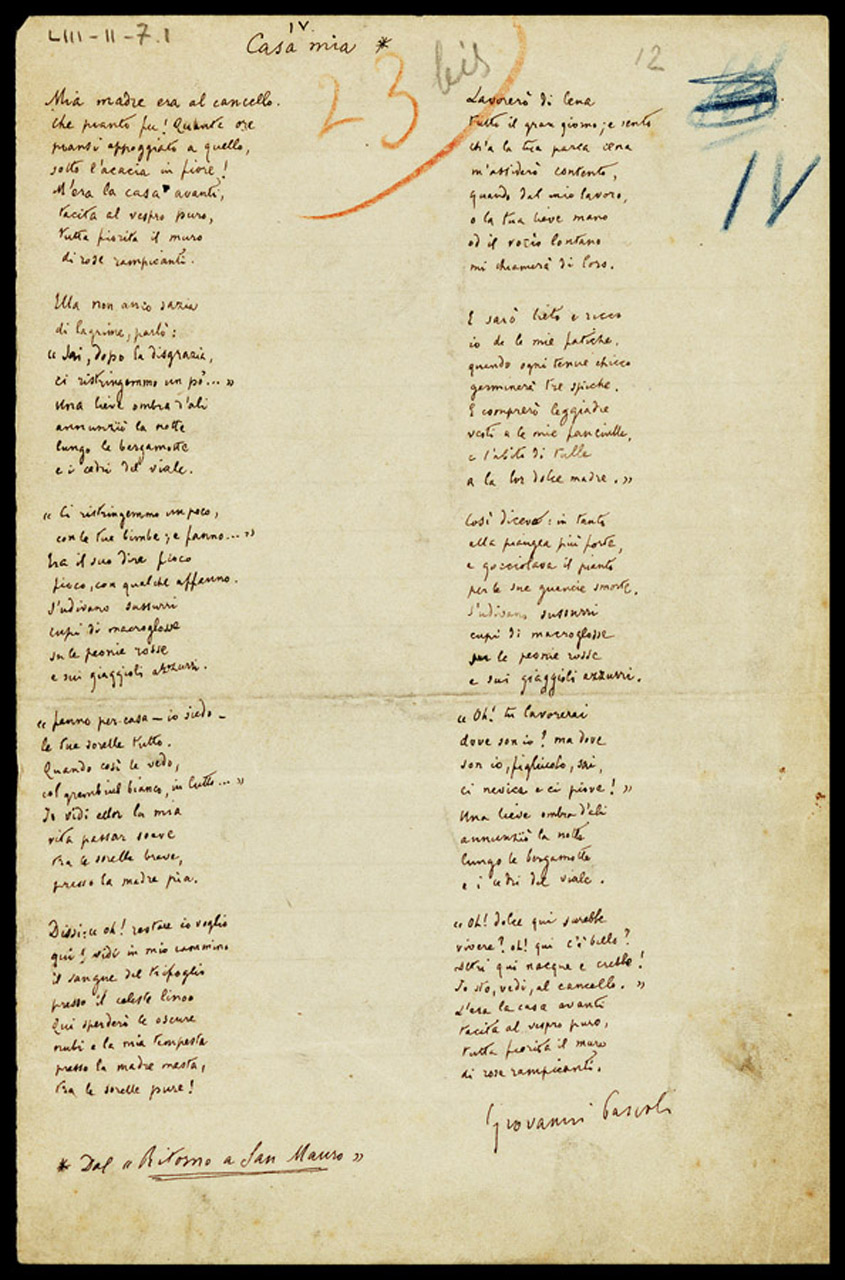 LIII - II - 7.1
IV
Casa mia *
23 bis
12
IV
Mia madre era al cancello.
Che pianto fu! Quante ore
piansi appoggiato a quello,
sotto l'acacia in fiore!
M'era la casa avanti,
tacita al vespro puro,
tutta fiorita il muro
di rose rampicanti.
Ella non anco sazia
di lagrime, parlò:
« Sai, dopo la disgrazia,
ci ristringemmo un po'... »
Una lieve ombra d'ali
annunziò la notte
lungo le bergamotte
e i cedri del viale.
« Ci ristringemmo un poco,
con le tue bimbe; e fanno... »
Era il suo dire fioco
fioco, con qualche affanno.
S'udivano sussurri
cupi di macroglosse
su le peonie rosse
e sui giaggioli azzurri.
« Fanno per casa — io siedo —
le tue sorelle tutto.
Quando così le vedo,
col grembiul bianco, in lutto... »
Io vidi allor la mia
vita passar soave
tra le sorelle brave,
presso la madre pia.
Dissi: « oh! restare io voglio
qui! vidi in mio cammino
il sangue del trifoglio
presso il celeste lino.
Qui sperderò le oscure
nubi e la mia tempesta
presso la madre mesta,
tra le sorelle pure!
Lavorerò di lena
tutto il gran giorno; e sento
ch'a la tua parca cena
m'assiderò contento,
quando dal mio lavoro,
o la tua lieve mano
od il vocio lontano
mi chiamerà di loro.
E sarò lieto e ricco
io de le mie fatiche,
quando ogni tenue chicco
germinerà tre spiche.
E comprerò leggiadre
vesti a le mie fanciulle,
e l'abito di tulle
a la lor dolce madre. »
Così diceva: in tanto
ella piangea più forte,
e gocciolava il pianto
per le sue guancie smorte.
S'udivano sussurri
cupi di macroglosse
su le peonie rosse
e sui giaggioli azzurri.
« Oh! tu lavorerai
dove son io? ma dove
son io, figliuolo, sai,
ci nevica e ci piove! »
Una lieve ombra d'ali
annunziò la notte
lungo le bergamotte
e i cedri del viale.
« Oh! dolce qui sarebbe
vivere? oh! qui c'è bello?
Altri qui nacque e crebbe!
Io sto, vedi, al cancello. »
M'era la casa avanti
tacita al vespro puro,
tutta fiorita il muro
di rose rampicanti.
Giovanni Pascoli
* Dal « Ritorno a San Mauro »